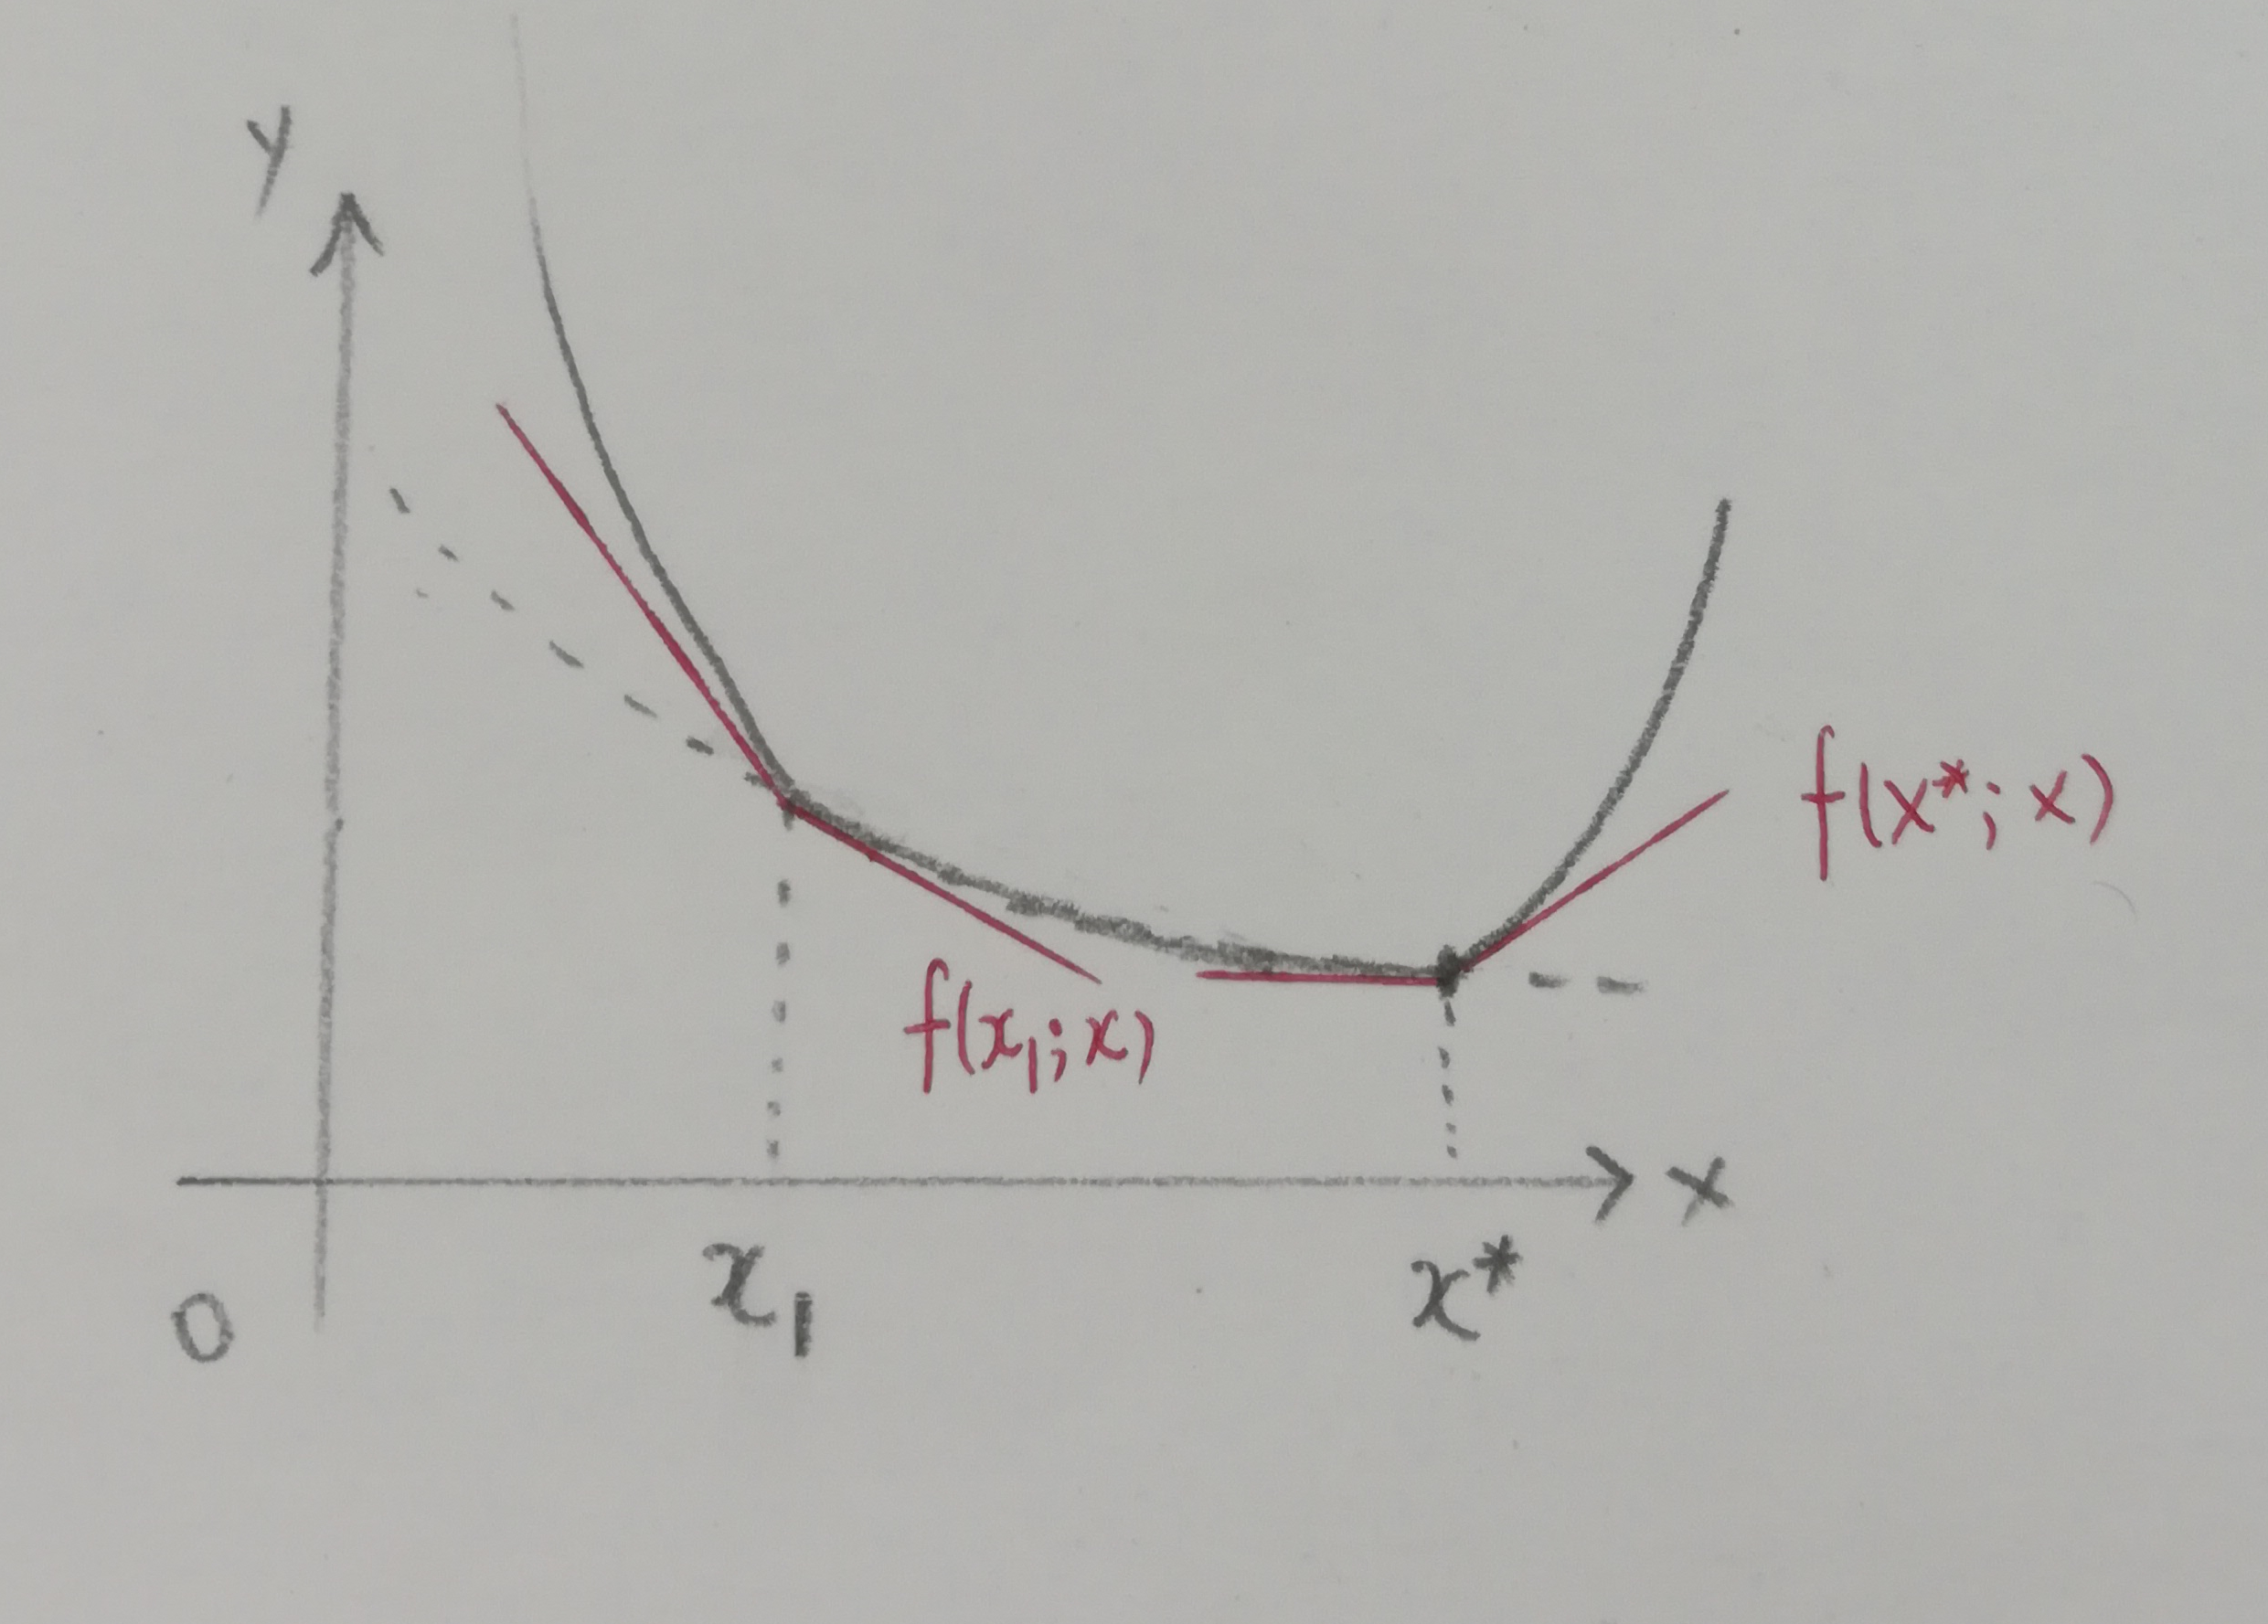 y
f(x*; x)
f(x₁; x)
x
x₁
x*
0